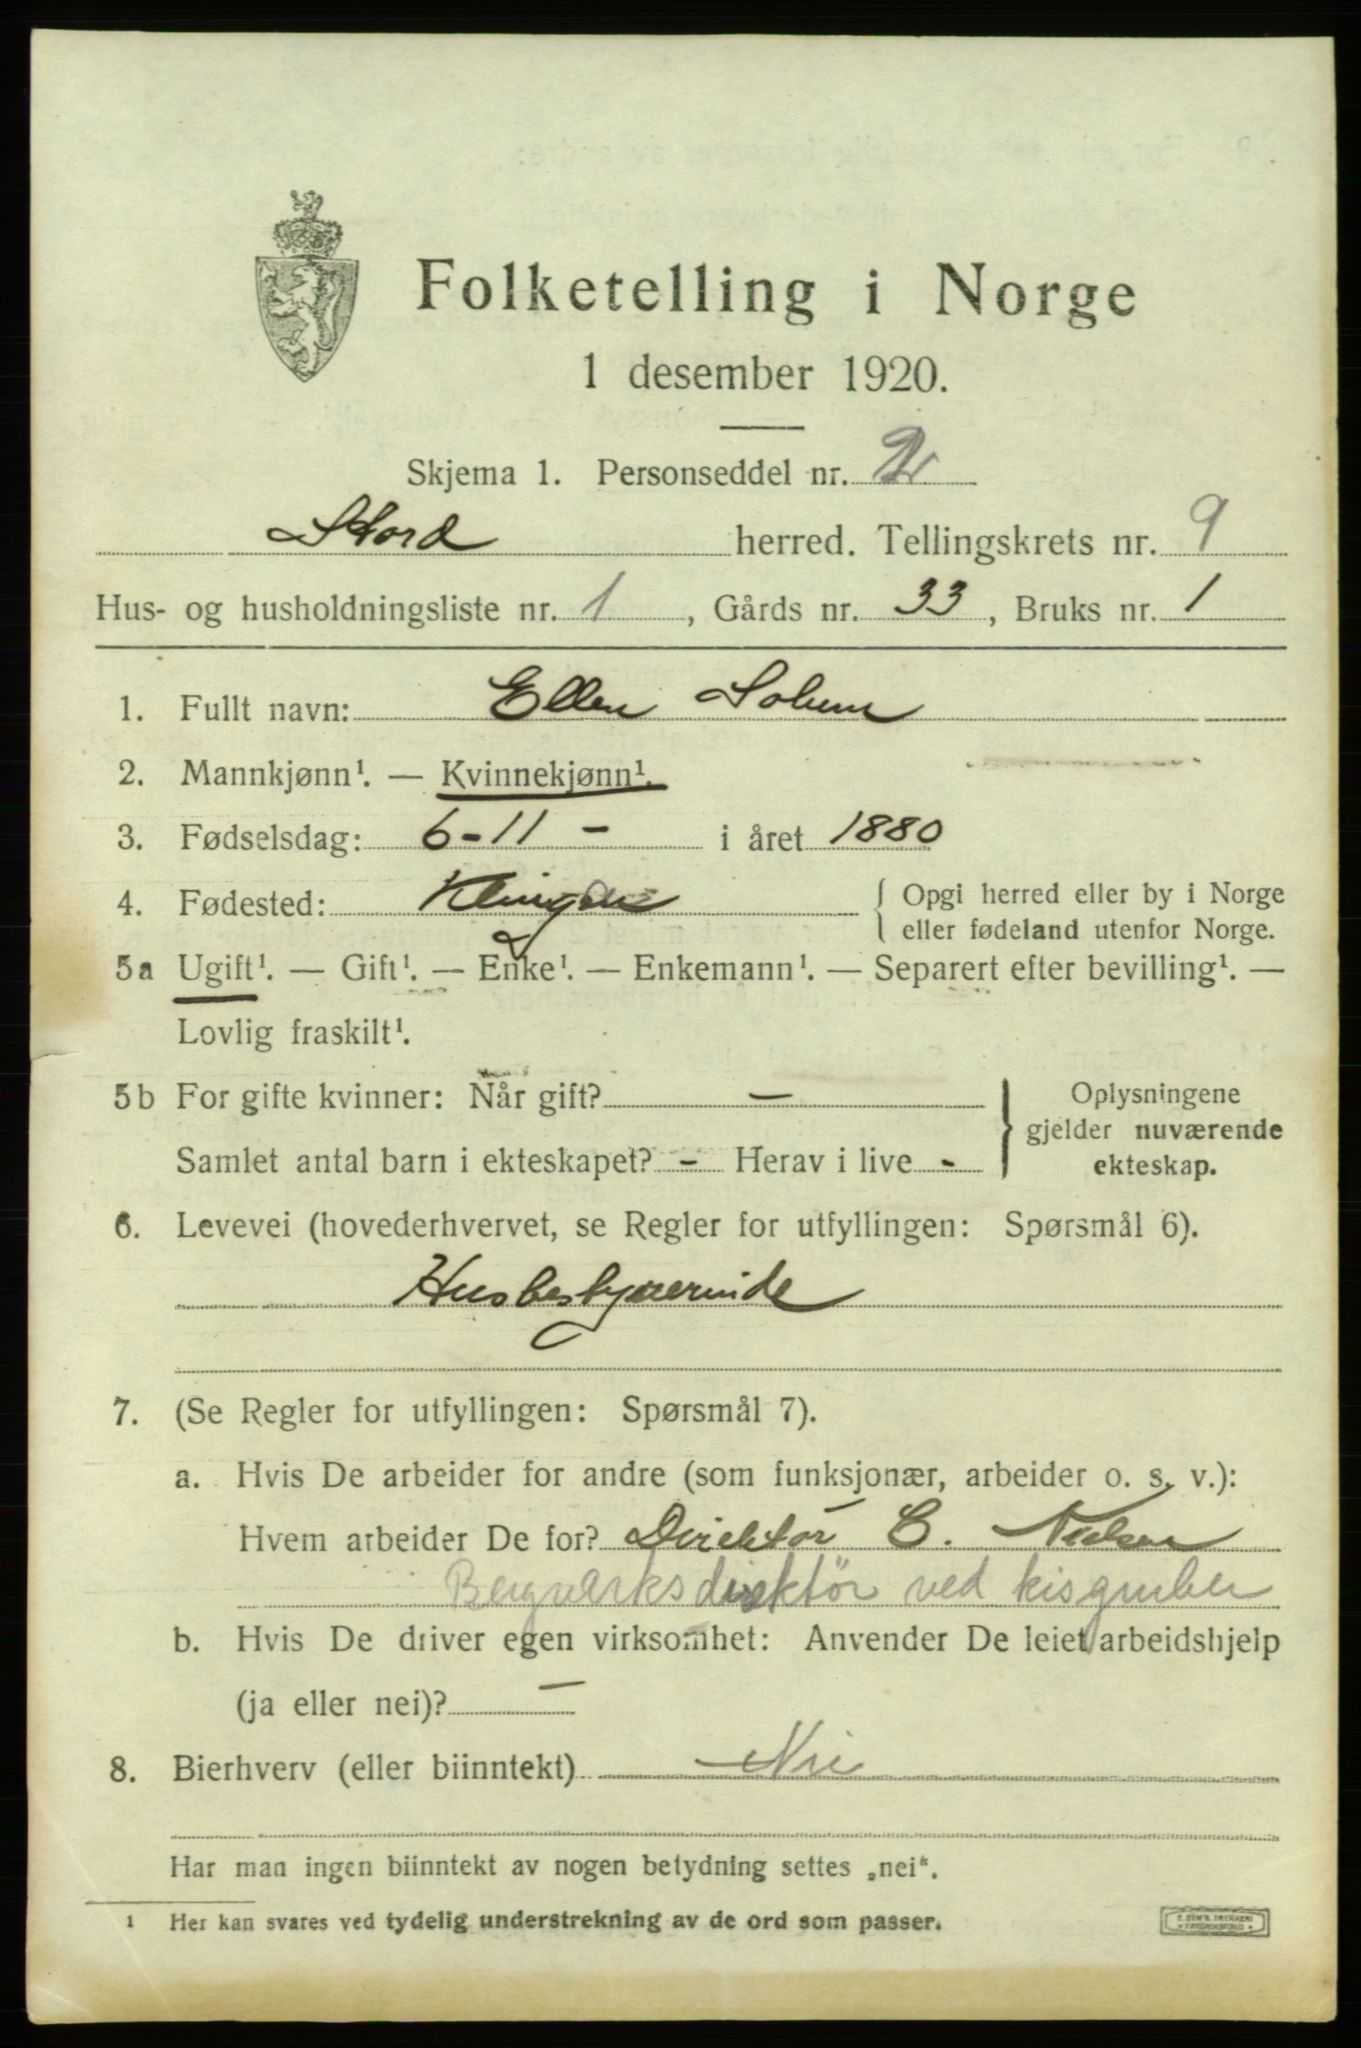 Folketelling i Norge
1 desember 1920.
Skjema 1. Personseddel nr. 2
Stord herred. Tellingskrets nr. 9
Hus- og husholdningsliste nr. 1, Gårds nr. 33, Bruks nr. 1
1. Fullt navn: Ellen Solum
2. Mannkjønn¹. — Kvinnekjønn¹.
3. Fødselsdag: 6-11 - i året 1880
4. Fødested: { Opgi herred eller by i Norge
eller fødeland utenfor Norge.
5a Ugift¹. — Gift¹. — Enke¹. — Enkemann¹. — Separert efter bevilling¹. —
Lovlig fraskilt¹.
5b For gifte kvinner: Når gift? — } Oplysningene
gjelder nuværende
Samlet antal barn i ekteskapet? - Herav i live -
ekteskap.
6. Levevei (hovederhvervet, se Regler for utfyllingen: Spørsmål 6).
Husbestyrerinde
7. (Se Regler for utfyllingen: Spørsmål 7).
a. Hvis De arbeider for andre (som funksjonær, arbeider o. s. v.):
Hvem arbeider De for? Direktør C. Nielsen
Bergverksdirektör ved kisgruber
b. Hvis De driver egen virksomhet: Anvender De leiet arbeidshjelp
(ja eller nei)? —
8. Bierhverv (eller biinntekt) Nei
Har man ingen biinntekt av nogen betydning settes „nei“.
¹ Her kan svares ved tydelig understrekning av de ord som passer.